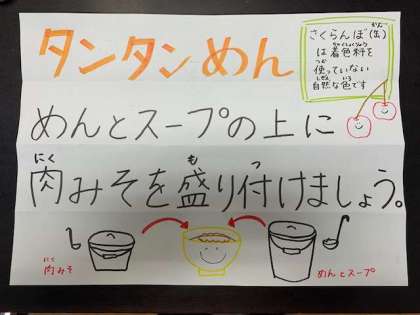 タンタンめん
さくらんぼ(缶)
は着色料を
使っていない
自然な色です
めんとスープの上に
肉みそを盛り付けましょう。
肉みそ
めんとスープ